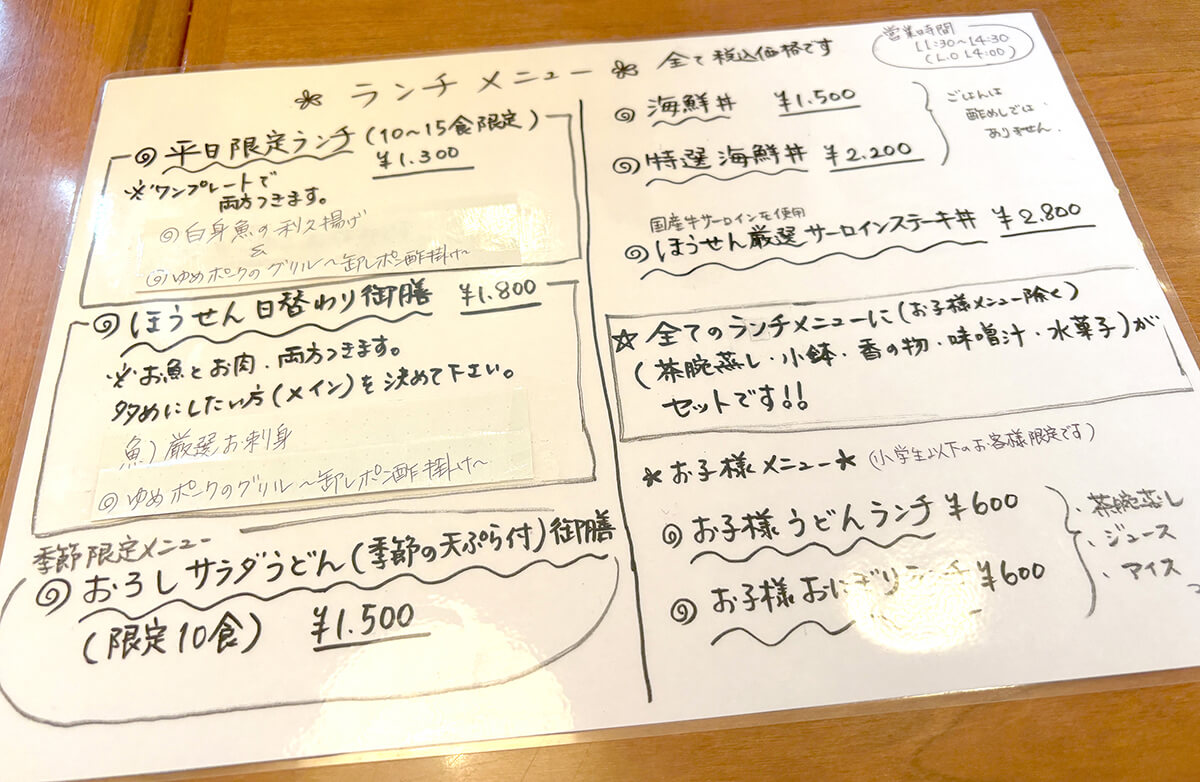 * ランチメニュー * 全て税込価格です
営業時間
11:30〜14:30
(L.O 14:00)
◎ 平日限定ランチ(10〜15食限定)
¥1.300
※ワンプレートで
両方つきます。
◎白身魚の利久揚げ
&
◎ゆめポークのグリル〜卸しポン酢掛け〜
◎ ほうせん日替わり御膳 ¥1.800
※お魚とお肉、両方つきます。
多めにしたい方(メイン)を決めて下さい。
魚)厳選お刺身
◎ゆめポークのグリル〜卸しポン酢掛け〜
季節限定メニュー
◎ おろしサラダうどん(季節の天ぷら付)御膳
(限定10食) ¥1.500
◎ 海鮮丼 ¥1.500
◎ 特選海鮮丼 ¥2.200
ごはんは
酢めしでは
ありません。
国産牛サーロインを使用
◎ ほうせん厳選サーロインステーキ丼 ¥2.800
☆ 全てのランチメニューに(お子様メニュー除く)
(茶腕蒸し・小鉢・香の物・味噌汁・水菓子)が
セットです!!
* お子様メニュー* (小学生以下のお客様限定です)
◎ お子様うどんランチ ¥600
◎ お子様おにぎりランチ ¥600
・茶腕蒸し
・ジュース
・アイス